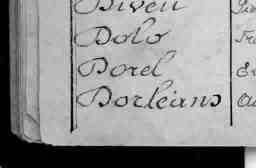 Diveu
Dolo
Dorel
Dorléans